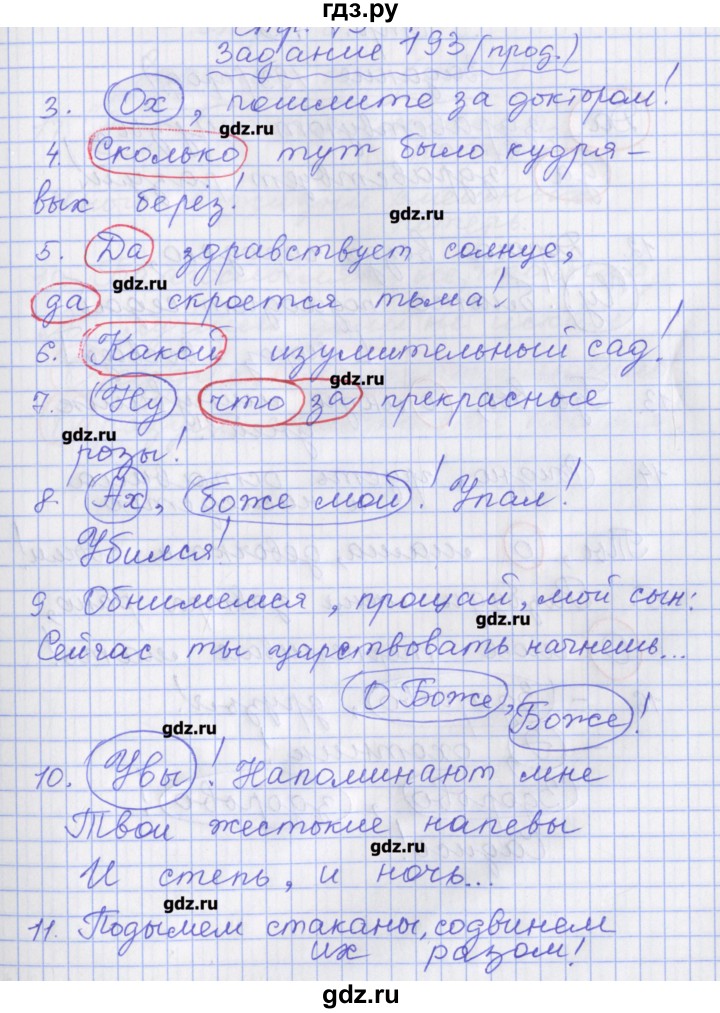 гдз.ру
Задание 193 (прод.)
3. Ох, пошлите за доктором!
gdz.ru
4. Сколько тут было кудря-
вых берёз!
gdz.ru
5. Да здравствует солнце,
gdz.ru
да скроется тьма!
6. Какой изумительный сад!
gdz.ru
7. Ну что за прекрасные
gdz.ru
розы!
8 Ах, боже мой! Упал!
Убился!
gdz.ru
9. Обнимемся, прощай, мой сын:
gdz.ru
Сейчас ты царствовать начнешь...
О Боже, Боже!
gdz.ru
10. Увы! Напоминают мне
Твои жестокие напевы
gdz.ru
И степь, и ночь...
gdz.ru
11. Подымем стаканы, содвинем
их разом!
gdz.ru